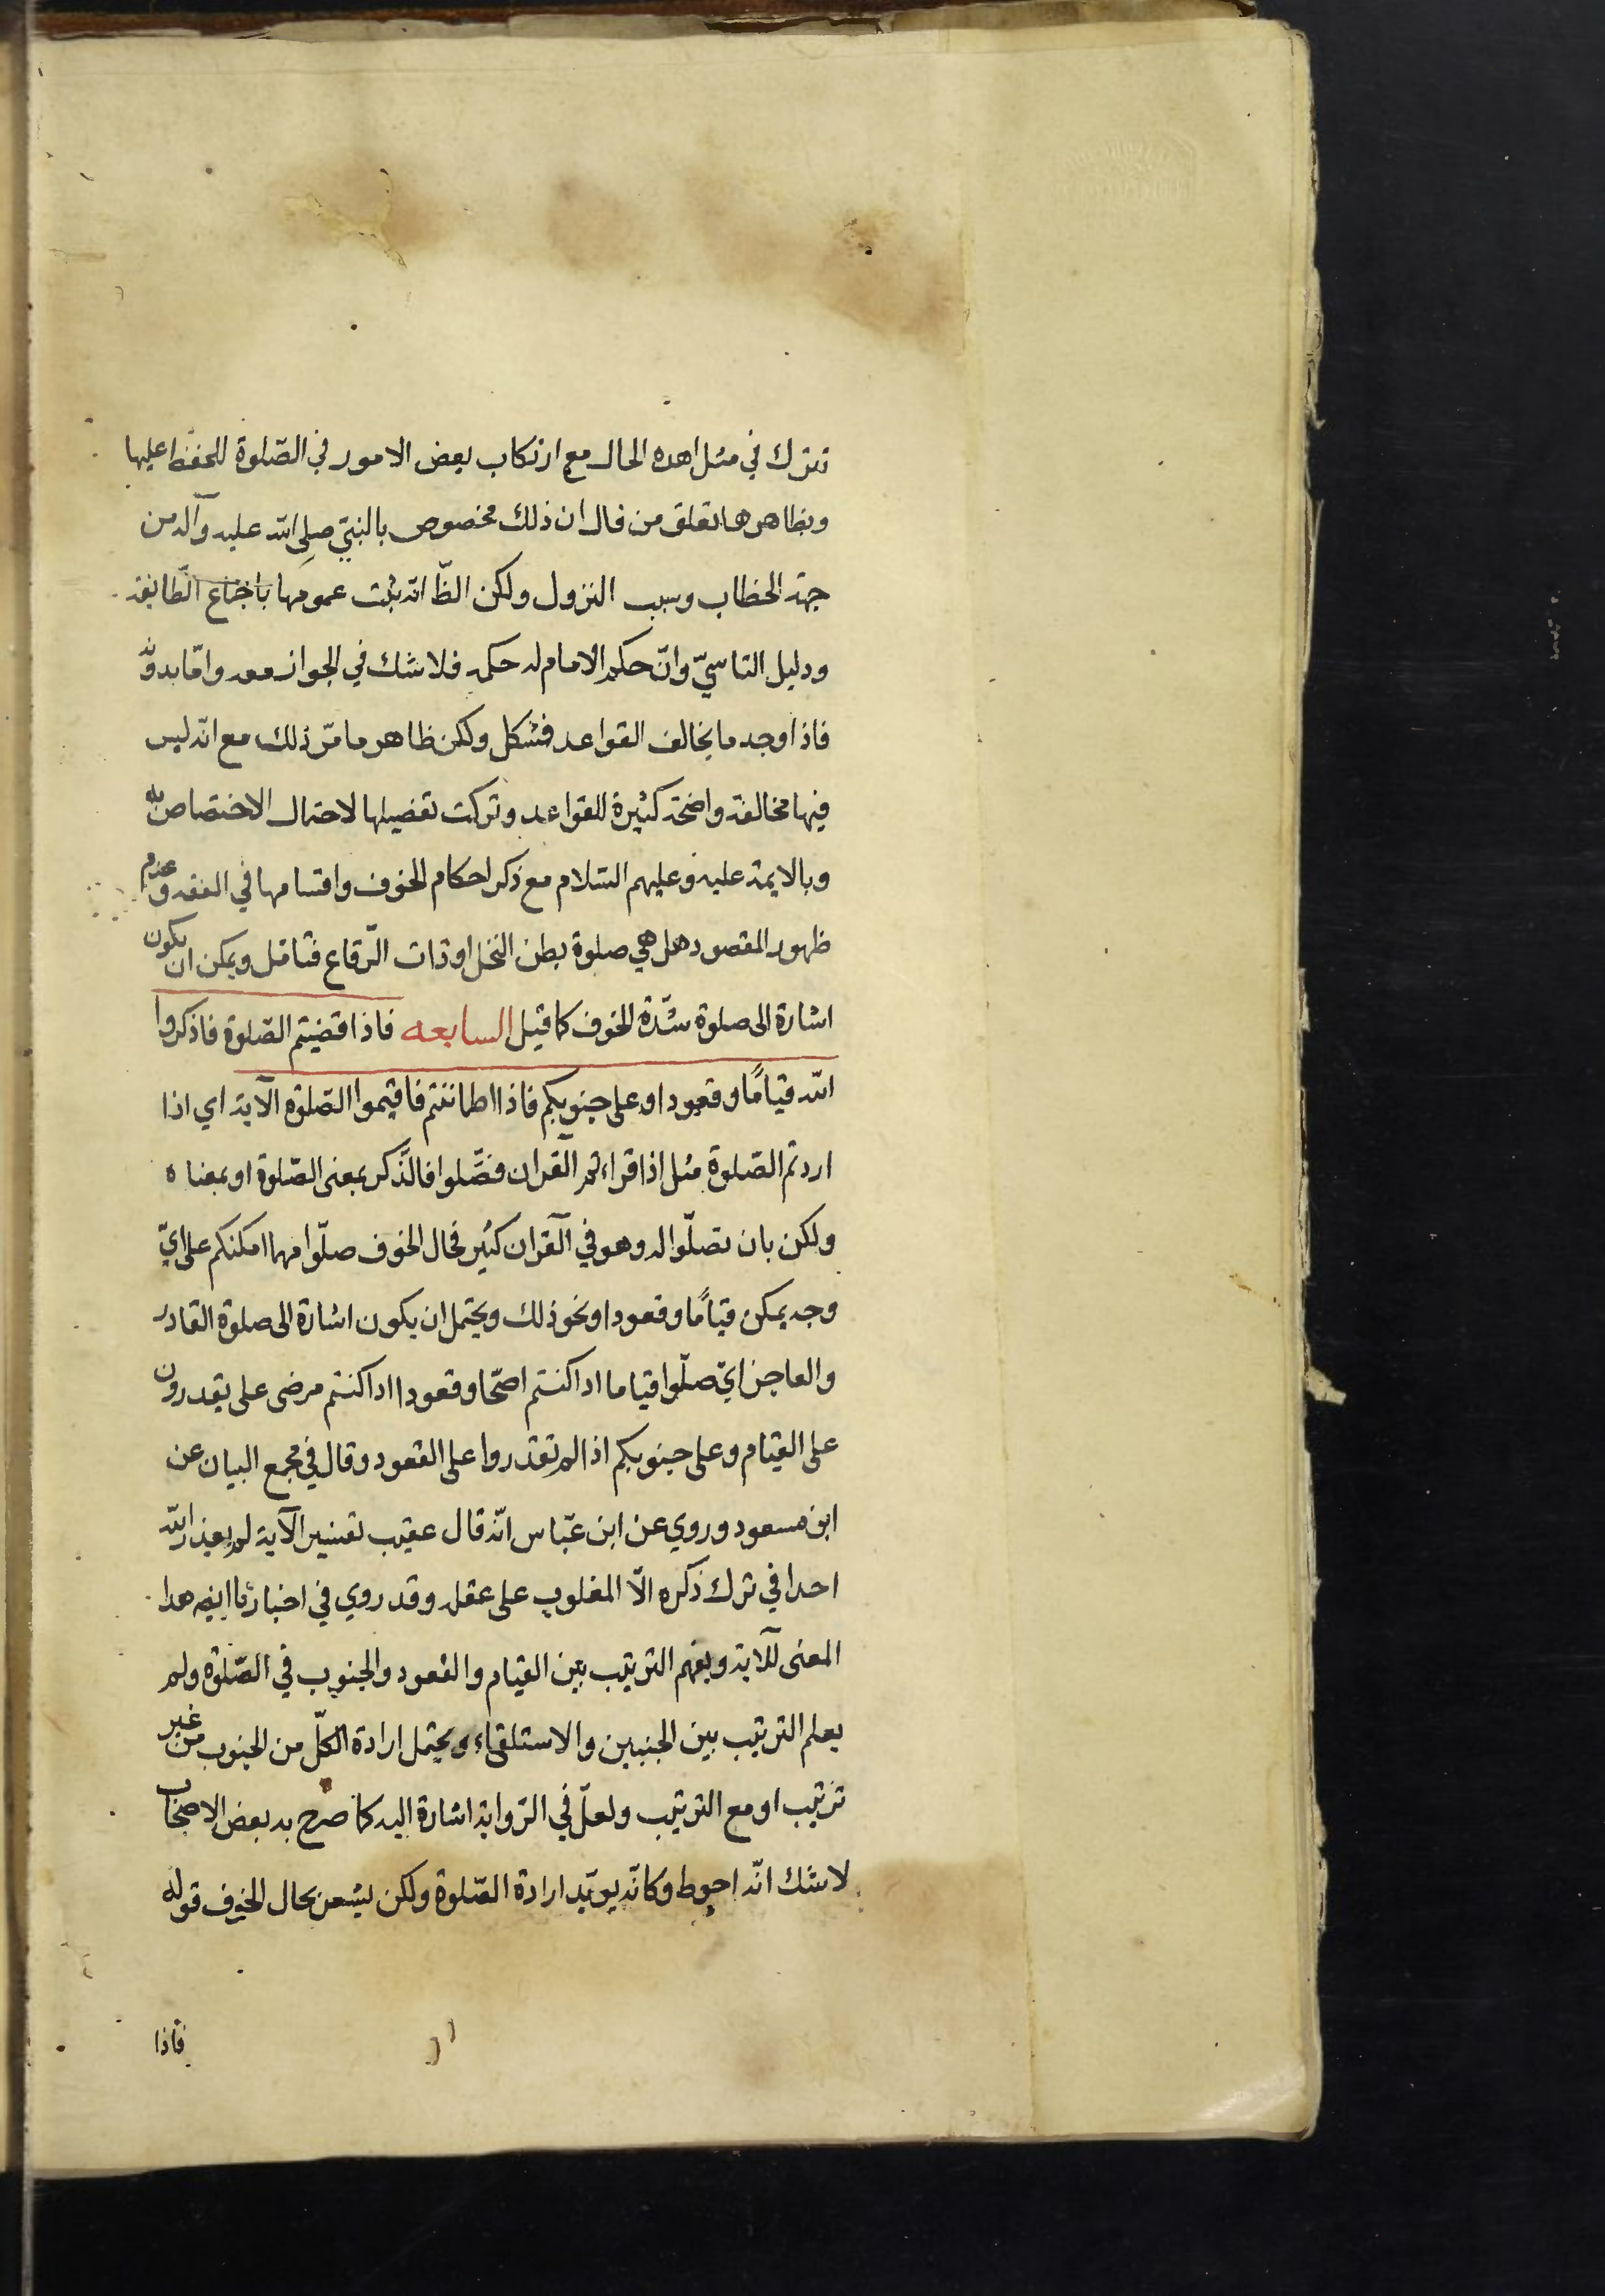 تترك في مثل هذه الحال مع ارتكاب بعض الامور في الصّلوة للحفظ عليها
وبظاهرها تعلق من قال ان ذلك مخصوص بالنبيّ صلى الله عليه وآله من
جهة الخطاب وسبب النزول ولكن الظّ انه يثبت عمومها باجماع الطّايفة
ودليل التاسيّ وانّ حكم الامام له حكمه فلا شك في الجواز معه وامّا بدونه
فاذا وجد ما يخالف القواعد فمشكل ولكن ظاهر ما مرّ ذلك مع انّه ليس
فيها مخالفة واضحة كثيرة للقواعد وتركت تفصيلها لاحتمال الاختصاص به
وبالايمة عليه وعليهم السّلام مع ذكر احكام الخوف واقسامها في الفقه وعدم
ظهور المقصود هل هي صلوة بطن النخل او ذات الرّقاع فتامّل ويمكن ان يكون
اشارة الى صلوة شدّة الخوف كما قيل السابعه فاذا قضيتم الصّلوة فاذكروا
الله قياماً وقعودا وعلى جنوبكم فاذا اطماننتم فاقيموا الصّلوة الآية اي اذا
اردتم الصّلوة مثل اذا قراءتم القرآن فصّلوا فالذّكر بمعنى الصّلوة او بمعناه
ولكن بان تصلّوا له وهو في القرآن كثير فحال الخوف صلّوا مهما امكنكم على ايّ
وجه يمكن قياماً وقعودا ونحو ذلك ويحتمل ان يكون اشارة الى صلوة القادر
والعاجز ايّ صلّوا قياما اذا كنتم اصّحا وقعودا اذا كنتم مرضى على يقدرون
على القيام وعلى جنوبكم اذا لم تقدروا على القعود وقال في مجمع البيان عن
ابن مسعود وروي عن ابن عبّاس انّه قال عقيب تفسير الآية لم يعذر الله
احدا في ترك ذكره الّا المغلوب على عقله وقد روي في اخبارنا ايضه هدا
المعنى للآية ويفهم الترتيب بين القيام والقعود والجنوب في الصّلوة ولم
يعلم الترتيب بين الجنبين والاستلقاء ويحتمل ارادة الكلّ من الجنوب من غير
ترتيب او مع الترتيب ولعلّ في الرّواية اشارة اليه كما صرح به بعض الاصحاب
لا شك انّه احوط وكانّه يويّد ارادة الصّلوة ولكن ليشعر بحال الخوف قوله
فاذا